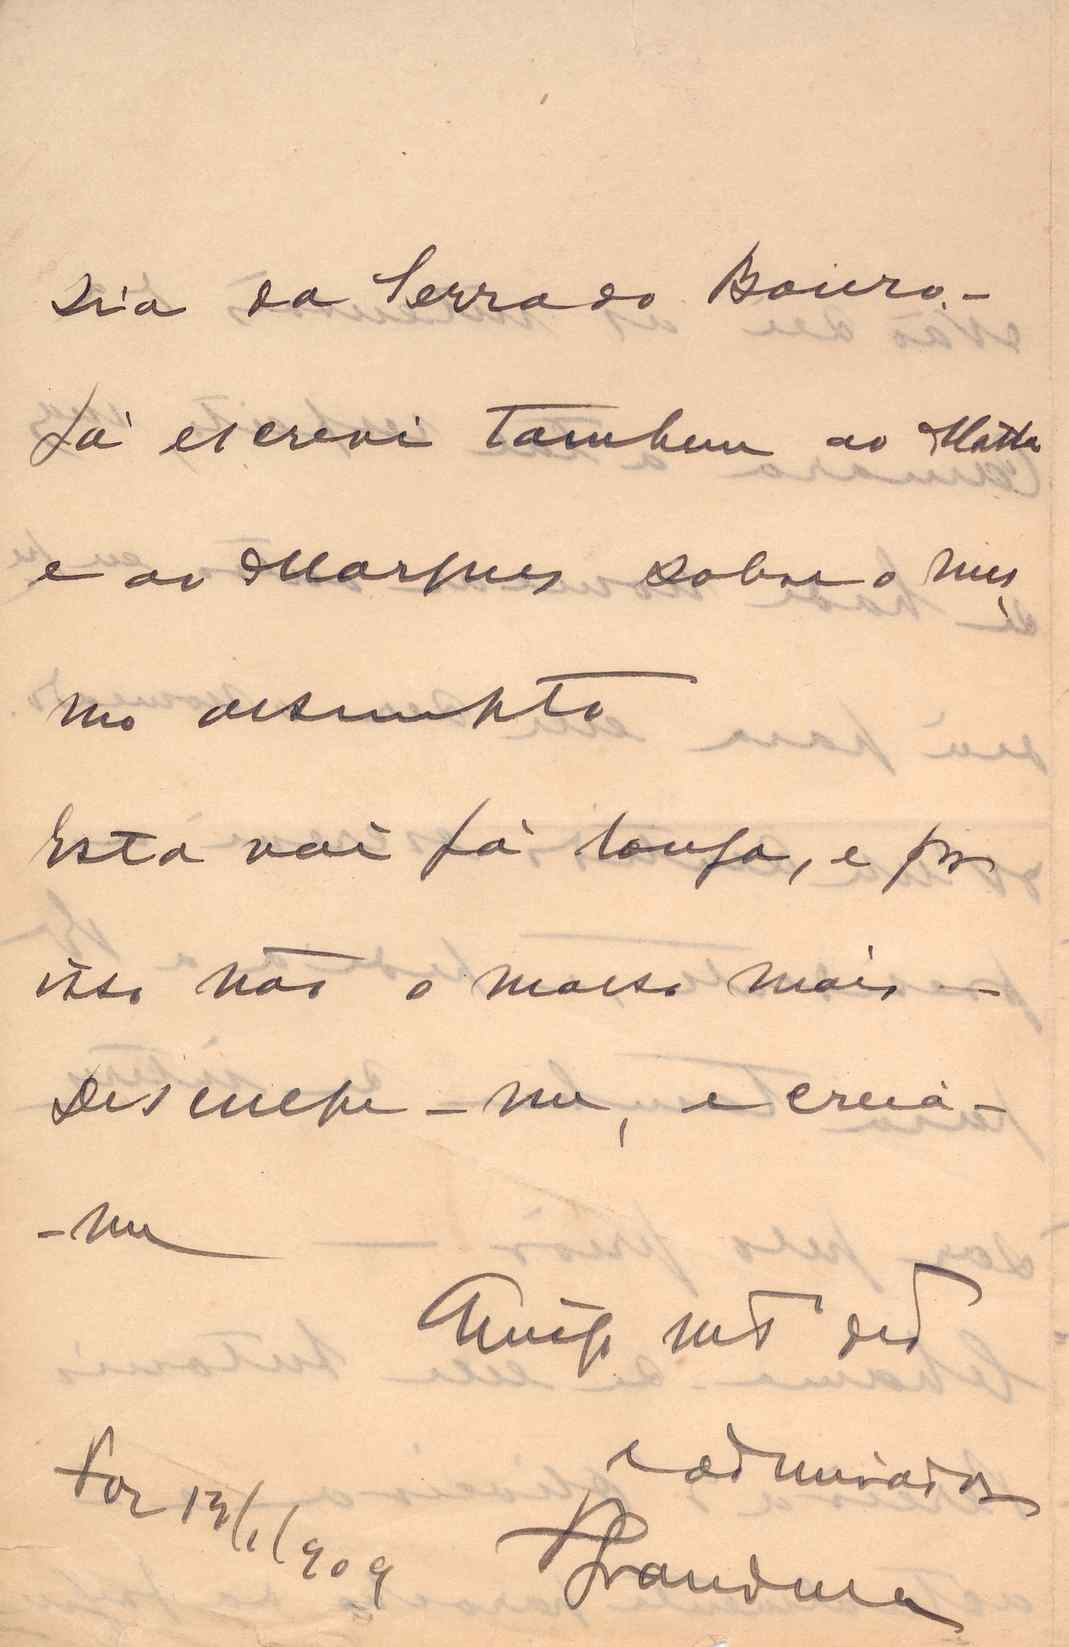 sia da Serra do Bouro.-
Já escrevi tambem ao Matta
e ao Marques sobre o mes,
mo assumpto
Esta vai já longa, e por
isso não o masso mais -
Desculpe-me, e creia-
-me
Amigo mtº dedº
e admirador
13/1/909